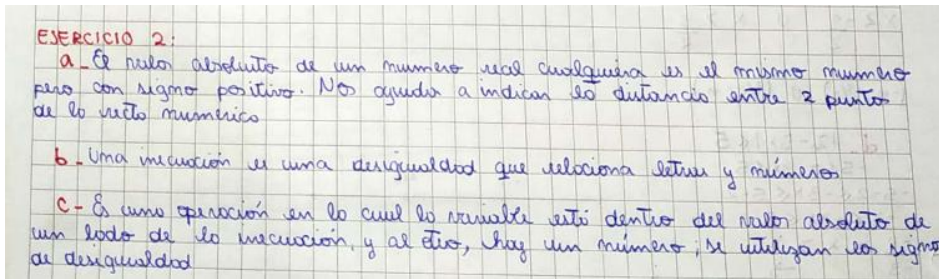 EJERCICIO 2:
a_ El valor absoluto de un numero real cualquiera es el mismo numero
pero con signo positivo. Nos ayuda a indicar la distancia entre 2 puntos
de la recta numerica
b_ Una inecuación es una desigualdad que relaciona letras y números
c- Es una operación en la cual la variable está dentro del valor absoluto de
un lado de la inecuación, y al otro, hay un número; se utilizan los signos
de desigualdad